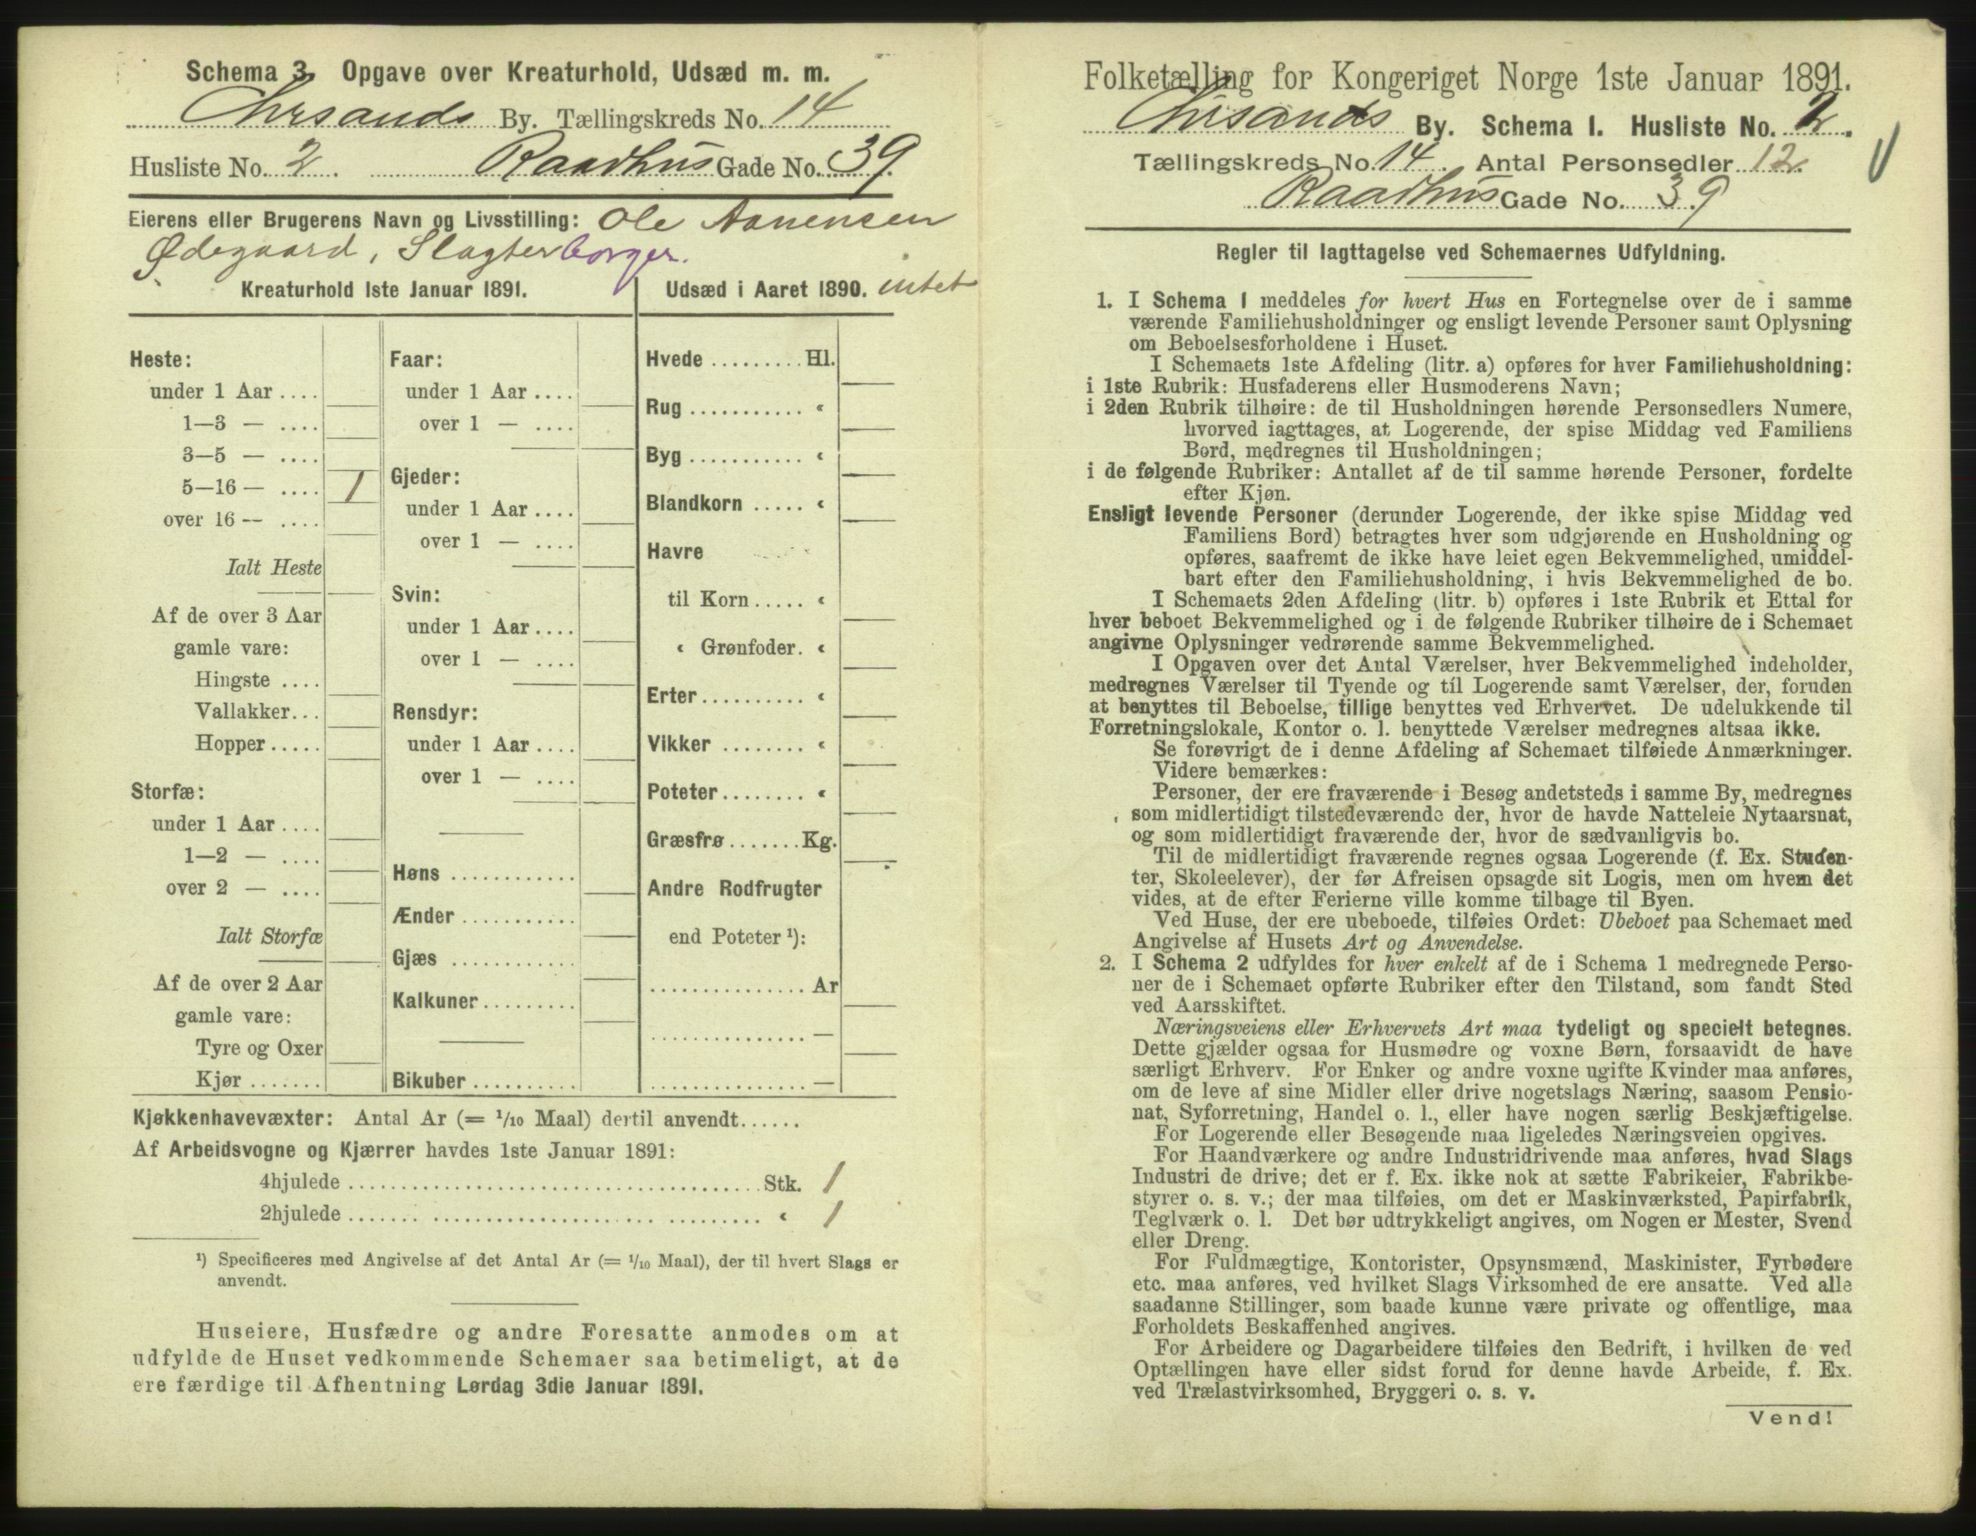 Schema 3. Opgave over Kreaturhold, Udsæd m. m.
Chrsands By. Tællingskreds No. 14
Husliste No. 2. Raadhus Gade No. 39.
Eierens eller Brugerens Navn og Livsstilling: Ole Aanensen
Ødegaard, Slagterborger.
Kreaturhold 1ste Januar 1891.
Heste:
under 1 Aar ....
1—3 — ....
3—5 — ....
5—16 — .... 1
over 16 — ....
Ialt Heste
Af de over 3 Aar
gamle vare:
Hingste ....
Vallakker...
Hopper.....
Storfæ:
under 1 Aar ....
1—2 — ....
over 2 — ....
Ialt Storfæ
Af de over 2 Aar
gamle vare:
Tyre og Oxer
Kjør .......
Faar:
under 1 Aar ....
over 1 — ....
Gjeder:
under 1 Aar ....
over 1 — ....
Svin:
under 1 Aar ....
over 1 — ....
Rensdyr:
under 1 Aar ....
over 1 — ....
Høns ............
Ænder ...........
Gjæs ............
Kalkuner.........
Bikuber ..........
Udsæd i Aaret 1890. intet
Hvede ......... Hl.
Rug ........... «
Byg ........... «
Blandkorn ..... «
Havre
til Korn ..... «
« Grønfoder. «
Erter.......... «
Vikker ........ «
Poteter........ «
Græsfrø ....... Kg.
Andre Rodfrugter
end Poteter ¹):
............... Ar
............... —
............... —
Kjøkkenhavevæxter: Antal Ar (= 1/10 Maal) dertil anvendt......
Af Arbeidsvogne og Kjærrer havdes 1ste Januar 1891:
4hjulede ........................................ Stk. 1
2hjulede ........................................ « 1
¹) Specificeres med Angivelse af det Antal Ar (= 1/10 Maal), der til hvert Slags er
anvendt.
Huseiere, Husfædre og andre Foresatte anmodes om at
udfylde de Huset vedkommende Schemaer saa betimeligt, at de
ere færdige til Afhentning Lørdag 3die Januar 1891.
Folketælling for Kongeriget Norge 1ste Januar 1891.
Chrisands By. Schema I. Husliste No. 2.
Tællingskreds No. 14. Antal Personsedler 12.
Raadhus Gade No. 39
Regler til Iagttagelse ved Schemaernes Udfyldning.
1. I Schema 1 meddeles for hvert Hus en Fortegnelse over de i samme
værende Familiehusholdninger og ensligt levende Personer samt Oplysning
om Beboelsesforholdene i Huset.
I Schemaets 1ste Afdeling (litr. a) opføres for hver Familiehusholdning:
i 1ste Rubrik: Husfaderens eller Husmoderens Navn;
i 2den Rubrik tilhøire: de til Husholdningen hørende Personsedlers Numere,
hvorved iagttages, at Logerende, der spise Middag ved Familiens
Bord, medregnes til Husholdningen;
i de følgende Rubriker: Antallet af de til samme hørende Personer, fordelte
efter Kjøn.
Ensligt levende Personer (derunder Logerende, der ikke spise Middag ved
Familiens Bord) betragtes hver som udgjørende en Husholdning og
opføres, saafremt de ikke have leiet egen Bekvemmelighed, umiddel-
bart efter den Familiehusholdning, i hvis Bekvemmelighed de bo.
I Schemaets 2den Afdeling (litr. b) opføres i 1ste Rubrik et Ettal for
hver beboet Bekvemmelighed og i de følgende Rubriker tilhøire de i Schemaet
angivne Oplysninger vedrørende samme Bekvemmelighed.
I Opgaven over det Antal Værelser, hver Bekvemmelighed indeholder,
medregnes Værelser til Tyende og til Logerende samt Værelser, der, foruden
at benyttes til Beboelse, tillige benyttes ved Erhvervet. De udelukkende til
Forretningslokale, Kontor o. l. benyttede Værelser medregnes altsaa ikke.
Se forøvrigt de i denne Afdeling af Schemaet tilføiede Anmærkninger.
Videre bemærkes:
Personer, der ere fraværende i Besøg andetsteds i samme By, medregnes
som midlertidigt tilstedeværende der, hvor de havde Natteleie Nytaarsnat,
og som midlertidigt fraværende der, hvor de sædvanligvis bo.
Til de midlertidigt fraværende regnes ogsaa Logerende (f. Ex. Studen-
ter, Skoleelever), der før Afreisen opsagde sit Logis, men om hvem det
vides, at de efter Ferierne ville komme tilbage til Byen.
Ved Huse, der ere ubeboede, tilføies Ordet: Ubeboet paa Schemaet med
Angivelse af Husets Art og Anvendelse.
2. I Schema 2 udfyldes for hver enkelt af de i Schema 1 medregnede Perso-
ner de i Schemaet opførte Rubriker efter den Tilstand, som fandt Sted
ved Aarsskiftet.
Næringsveiens eller Erhvervets Art maa tydeligt og specielt betegnes.
Dette gjælder ogsaa for Husmødre og voxne Børn, forsaavidt de have
særligt Erhverv. For Enker og andre voxne ugifte Kvinder maa anføres,
om de leve af sine Midler eller drive nogetslags Næring, saasom Pensio-
nat, Syforretning, Handel o. l., eller have nogen særlig Beskjæftigelse.
For Logerende eller Besøgende maa ligeledes Næringsveien opgives.
For Haandværkere og andre Industridrivende maa anføres, hvad Slags
Industri de drive; det er f. Ex. ikke nok at sætte Fabrikeier, Fabrikbe-
styrer o. s. v.; der maa tilføies, om det er Maskinværksted, Papirfabrik,
Teglværk o. l. Det bør udtrykkeligt angives, om Nogen er Mester, Svend
eller Dreng.
For Fuldmægtige, Kontorister, Opsynsmænd, Maskinister, Fyrbødere
etc. maa anføres, ved hvilket Slags Virksomhed de ere ansatte. Ved alle
saadanne Stillinger, som baade kunne være private og offentlige, maa
Forholdets Beskaffenhed angives.
For Arbeidere og Dagarbeidere tilføies den Bedrift, i hvilken de ved
Optællingen have eller sidst forud for denne havde Arbeide, f. Ex.
ved Trælastvirksomhed, Bryggeri o. s. v.
Vend!